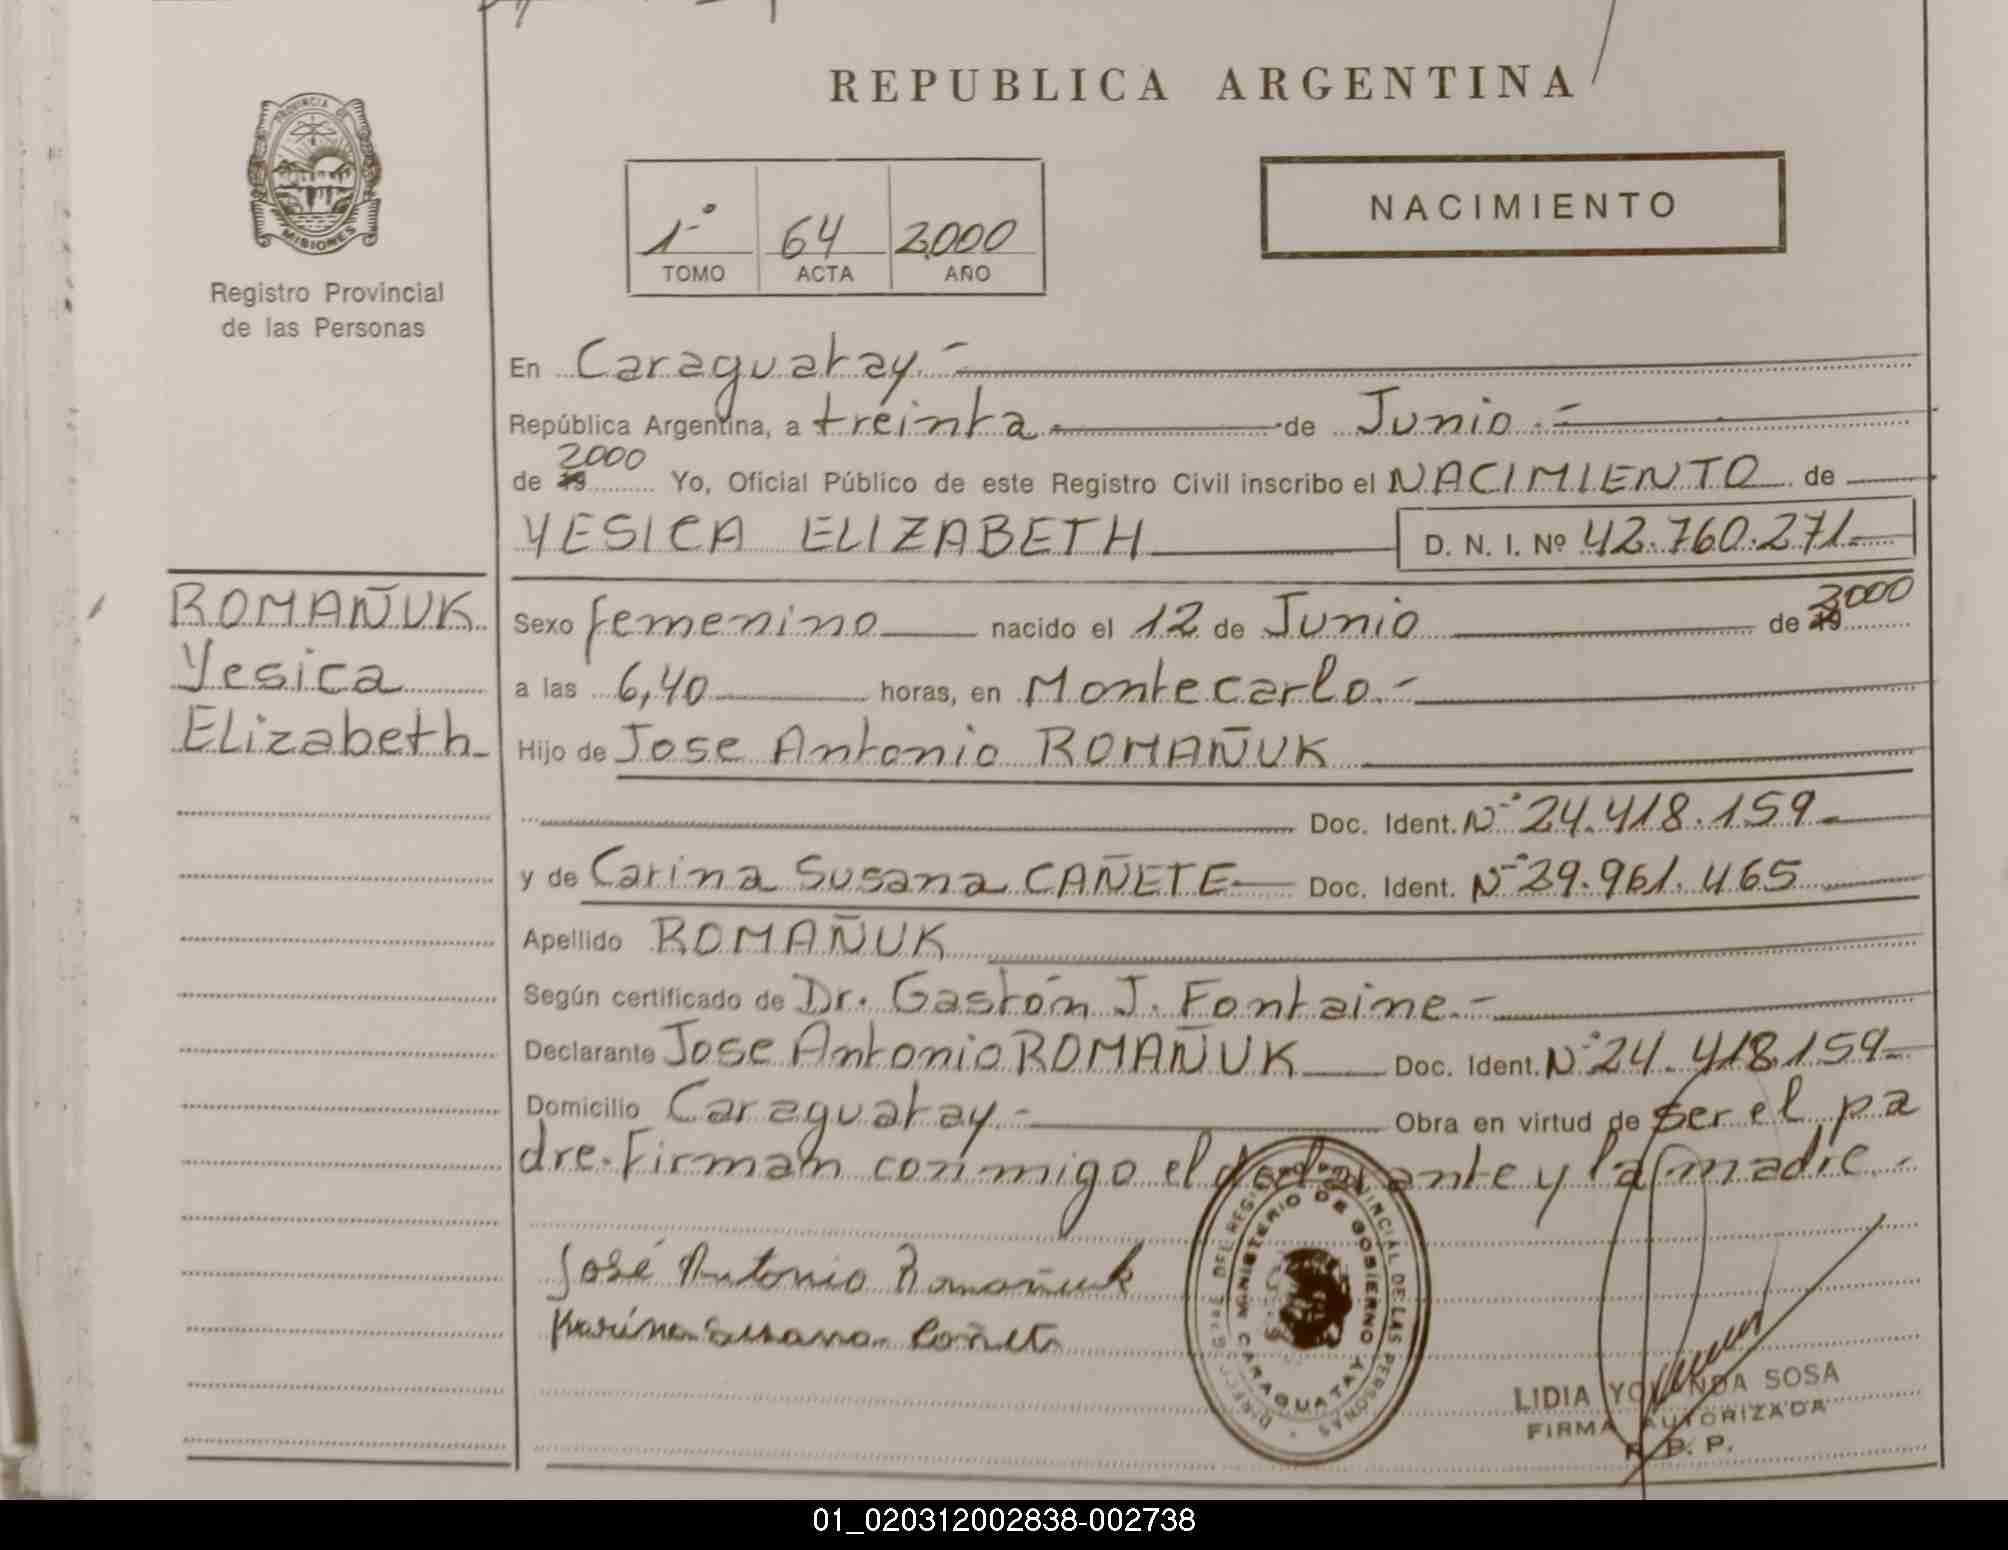 REPUBLICA ARGENTINA
PROVINCIA DE
MISIONES
Registro Provincial
de las Personas
1º 64 2.000
TOMO ACTA AÑO
NACIMIENTO
En Caraguatay.-
República Argentina, a treinta de Junio.-
de 2000 19 Yo, Oficial Público de este Registro Civil inscribo el NACIMIENTO de
YESICA ELIZABETH D. N. I. Nº 42.760.271.-
ROMAÑUK
Yesica
Elizabeth
Sexo femenino nacido el 12 de Junio de 19 2000
a las 6,40 horas, en Montecarlo.-
Hijo de Jose Antonio ROMAÑUK
Doc. Ident. Nº 24.418.159.-
y de Carina Susana CAÑETE Doc. Ident. Nº 29.961.465
Apellido ROMAÑUK
Según certificado de Dr. Gastón J. Fontaine.-
Declarante Jose Antonio ROMAÑUK Doc. Ident. Nº 24.418.159-
Domicilio Caraguatay.- Obra en virtud de ser el pa
dre. Firman conmigo el declarante y la madre.-
José Antonio Romañuk
Karina Susana Cañete
MINISTERIO DE GOBIERNO
CARAGUATAY
LIDIA YOLANDA SOSA
FIRMA AUTORIZADA
R. P. P.
01_020312002838-002738